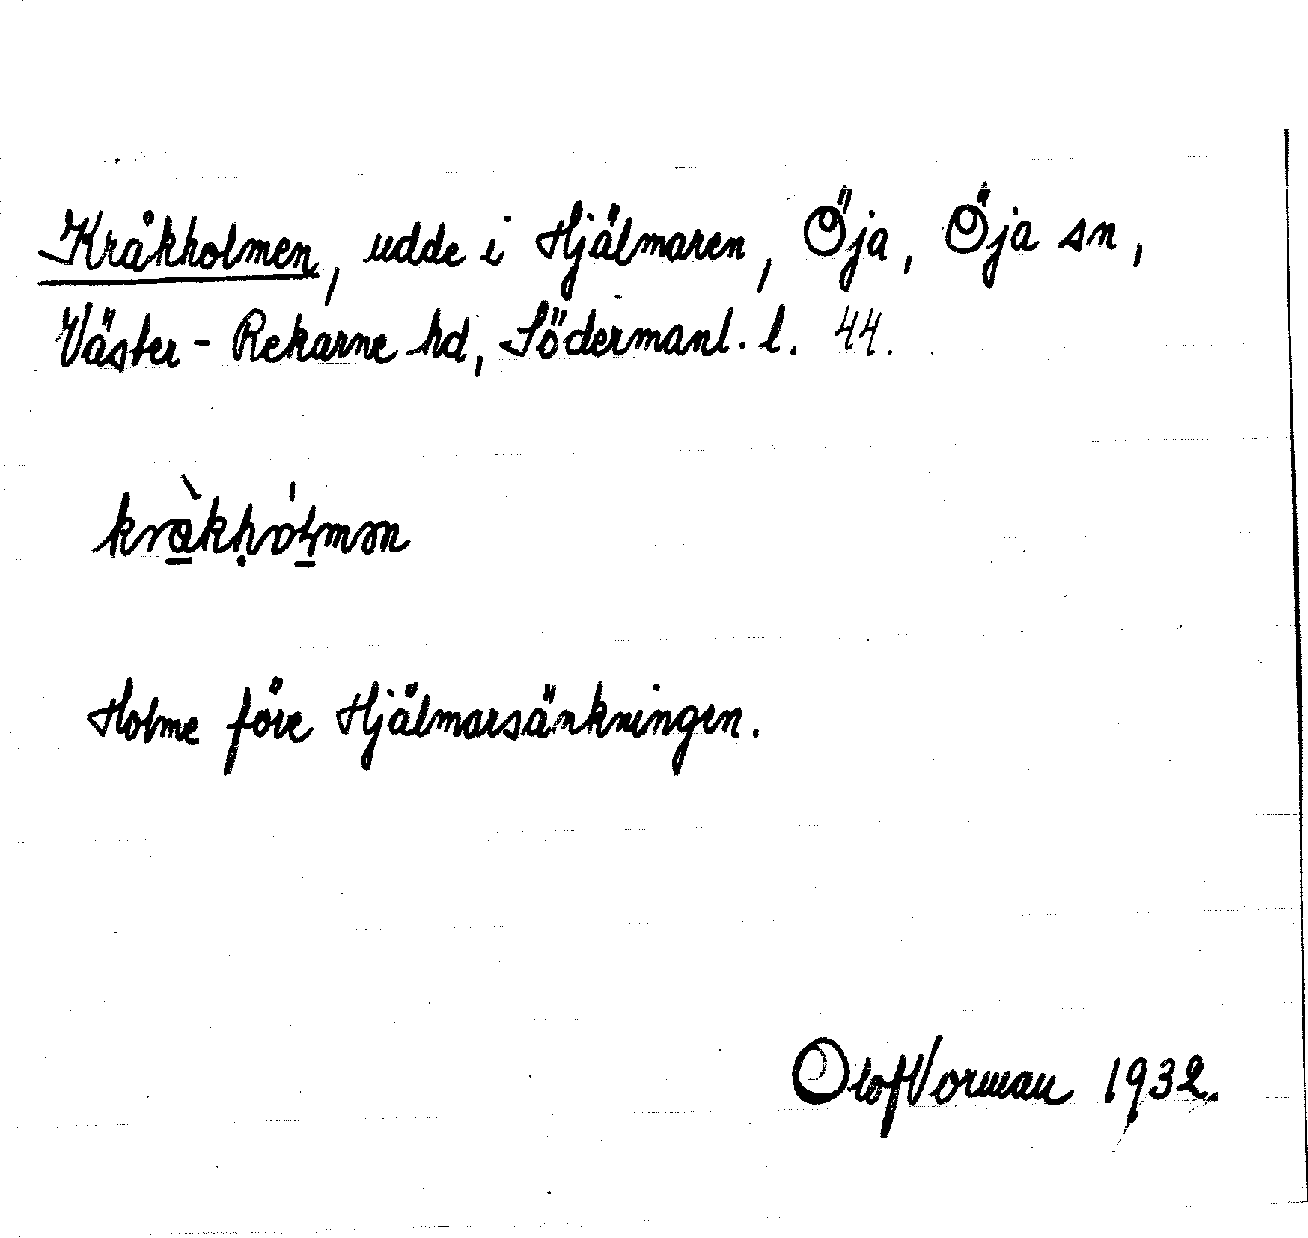 Kråkholmen, udde i Hjälmaren, Öja, Öja sn,
Väster-Rekarne hd, Södermanl. l. 44.
Holme före Hjälmarsänkningen.
Olof Vorman 1932.